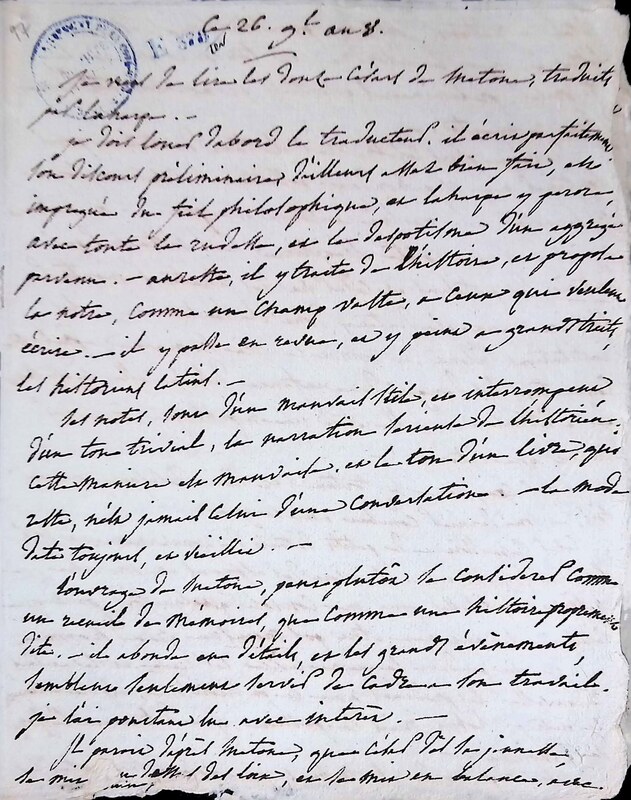 97
Ce 26. 9.bre an 8.
je viens de lire les douze Césars de Suetone, traduits
par Laharpe. -
je dois louer d'abord le traducteur. il écris parfaitement
son discours préliminaire, d'ailleurs assez bien fait, est
impregné du fiel philosophique, et laharpe y perore,
avec toute la rudesse, et le despotisme d'un aggrégé
parvenu. - au reste, il y traite de l'histoire, et propose
la notre, comme un champ vaste, a ceux qui veulent
écrire. - il y passe en revue, et y peint a grands traits
les historiens latins. -
ses notes, sont d'un mauvais stile, et interrompent
d'un ton trivial, la narration serieuse de l'historien.
cette maniere est mauvaise. et le ton d'un livre, quoi
reste, n'est jamais celui d'une conversation. - la mode
date toujours, et vieillie. -
l'ouvrage de Suetone, peut plutôt se considerer comme
un recueil de mémoires, que comme une histoire proprement
dite. - il abonde en détails, et les grands évènements,
semblent seulement servir de cadre a son travail.
je l'ai pourtant lu avec interès. -
Il paroit d'après Suetone, que César dès sa jeunesse
se mit au dessus des loix, et se mit en balance, avec